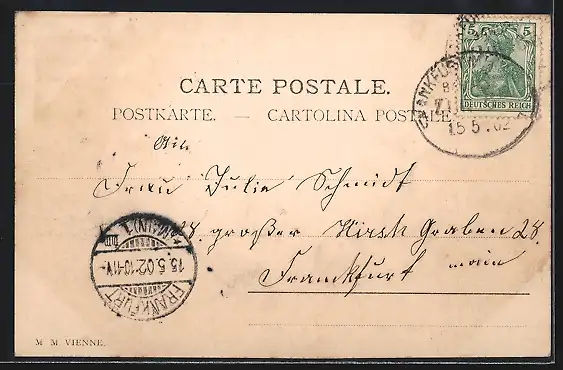 5 5
DEUTSCHES REICH
CARTE POSTALE.
POSTKARTE. — CARTOLINA POSTALE
15 5 . 02
An
Frau Julie Schmidt
28. großer Hirsch Graben 28.
Frankfurt main
FRANKFURT (MAIN) 1
15.5.02 10-11V.
M M VIENNE.